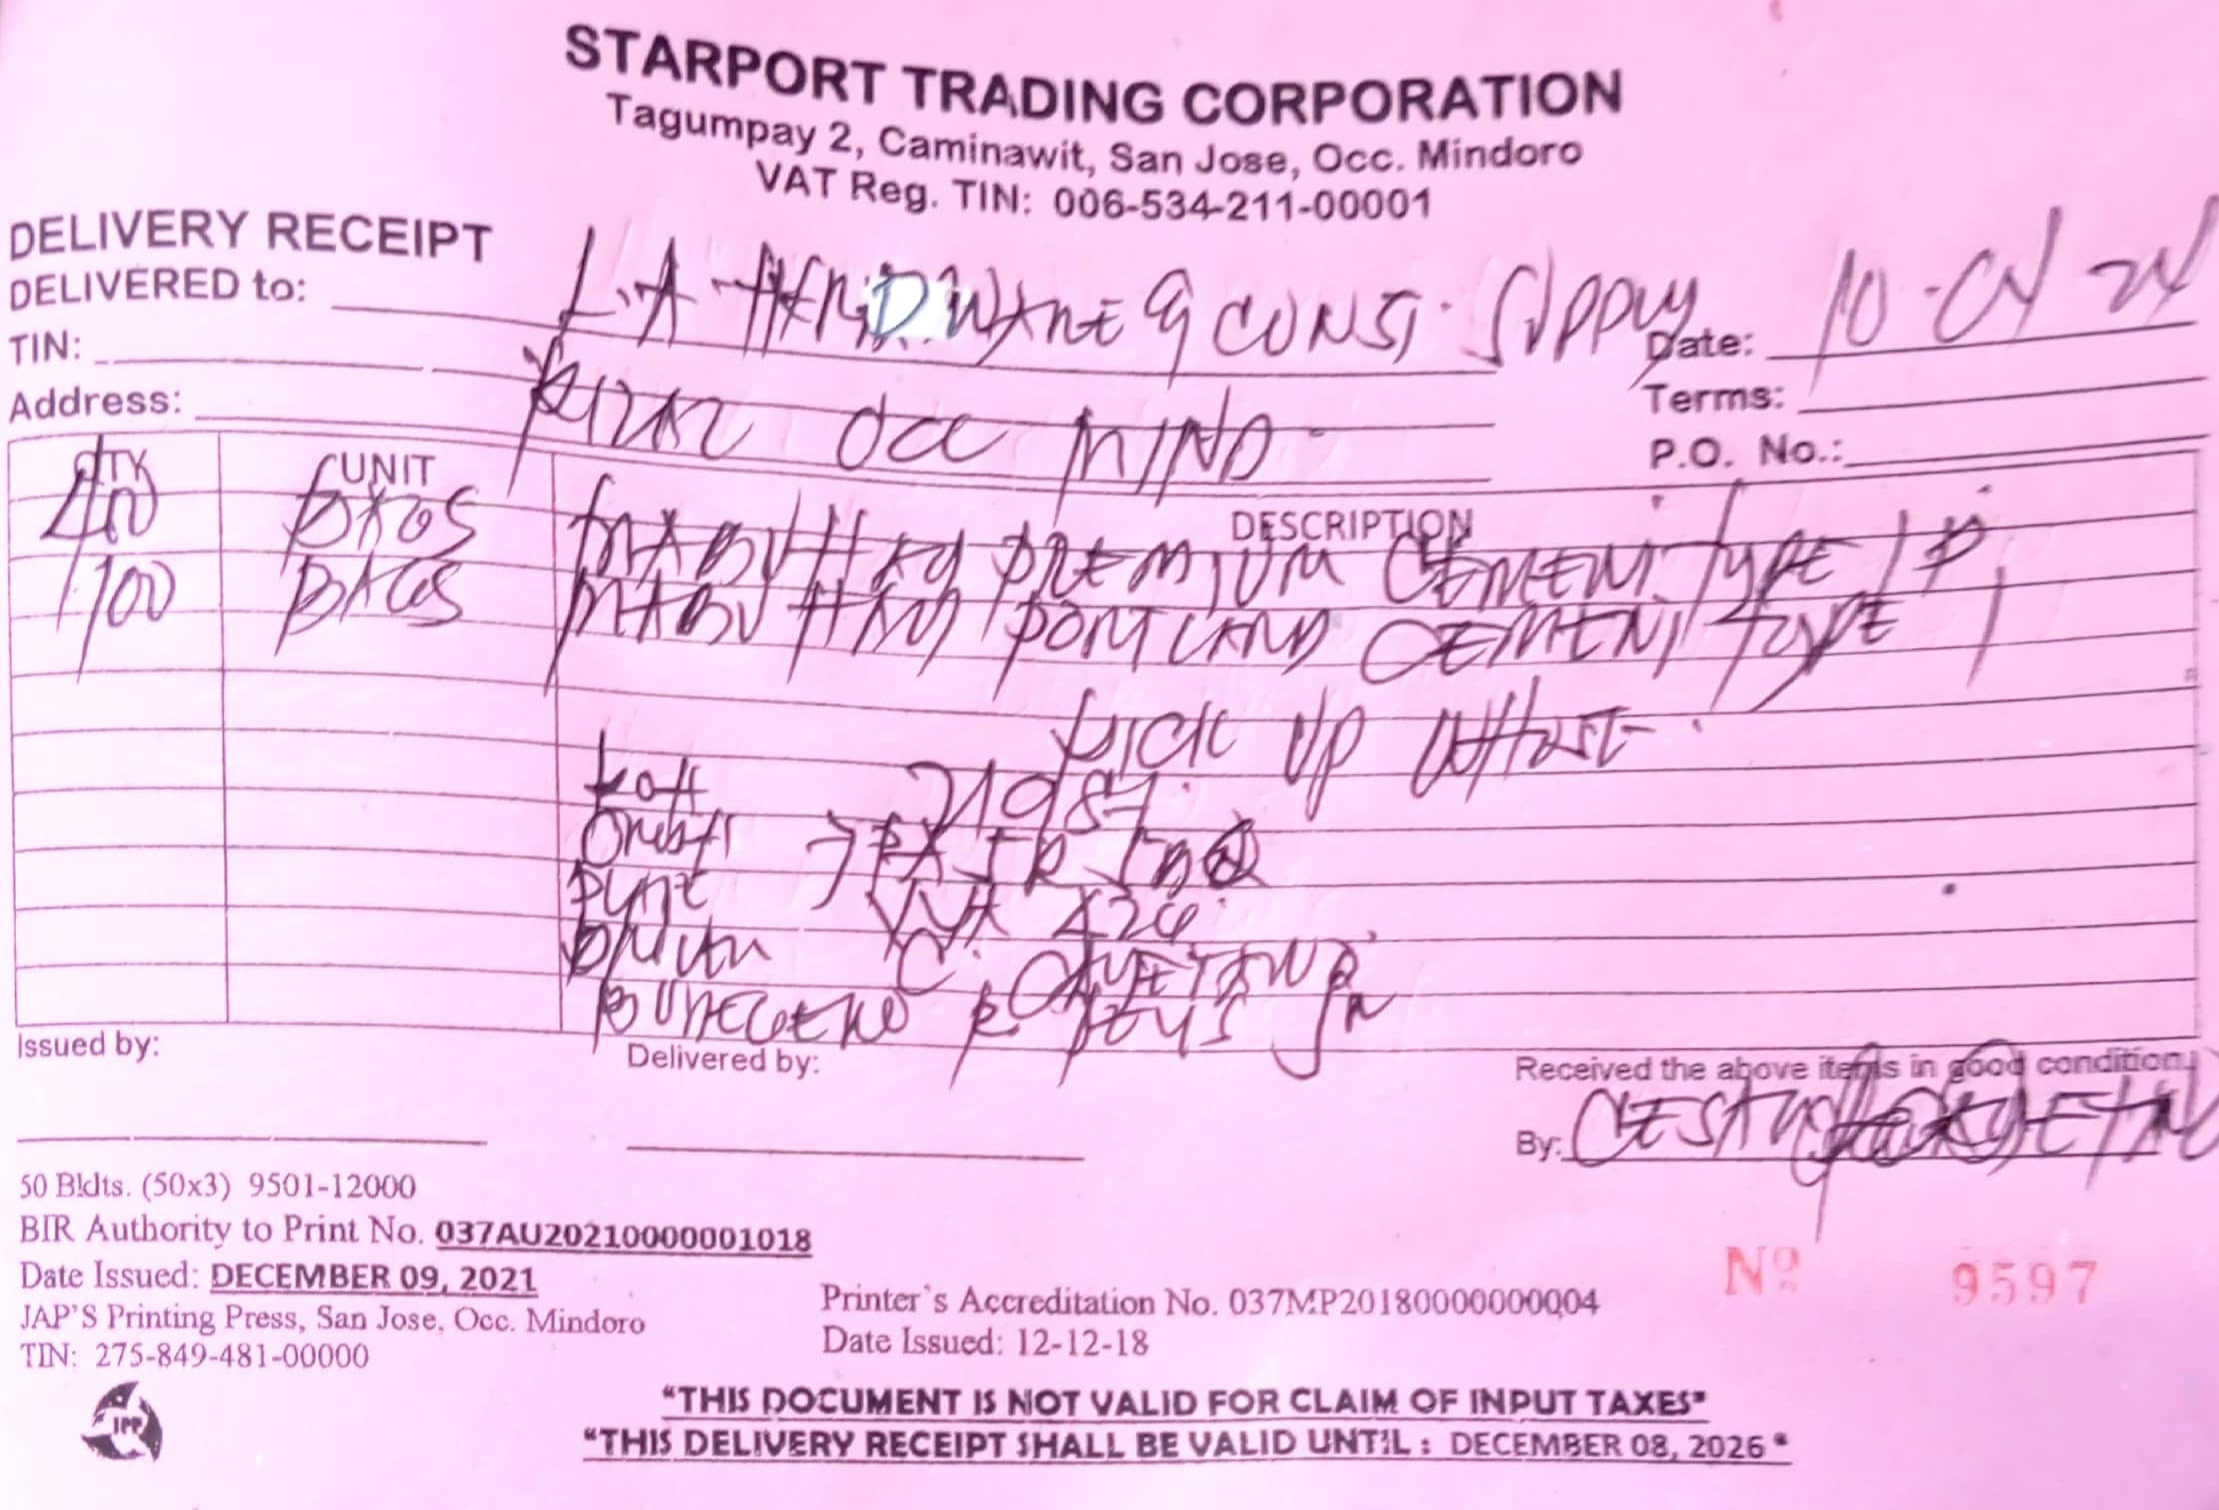 STARPORT TRADING CORPORATION
Tagumpay 2, Caminawit, San Jose, Occ. Mindoro
VAT Reg. TIN: 006-534-211-00001
DELIVERY RECEIPT
DELIVERED to: L.A HARDWARE & CONST. SUPPLY Date: 10-04-24
TIN: Terms:
Address: RIZAL OCC MIND. P.O. No.:
QTY UNIT DESCRIPTION
400 BAGS MABUHAY PREMIUM CEMENT TYPE 1P
100 BAGS MABUHAY PORTLAND CEMENT TYPE 1
PICK UP WHSE.
PLATE
C. CAYETANO
BUNEGERO R JR
Issued by: Delivered by: Received the above items in good condition.
By:
50 Bklts. (50x3) 9501-12000
BIR Authority to Print No. 037AU20210000001018
Date Issued: DECEMBER 09, 2021
JAP'S Printing Press, San Jose, Occ. Mindoro
TIN: 275-849-481-00000
Printer's Accreditation No. 037MP20180000000004
Date Issued: 12-12-18
Nº 9597
JPP
"THIS DOCUMENT IS NOT VALID FOR CLAIM OF INPUT TAXES"
"THIS DELIVERY RECEIPT SHALL BE VALID UNTIL : DECEMBER 08, 2026"